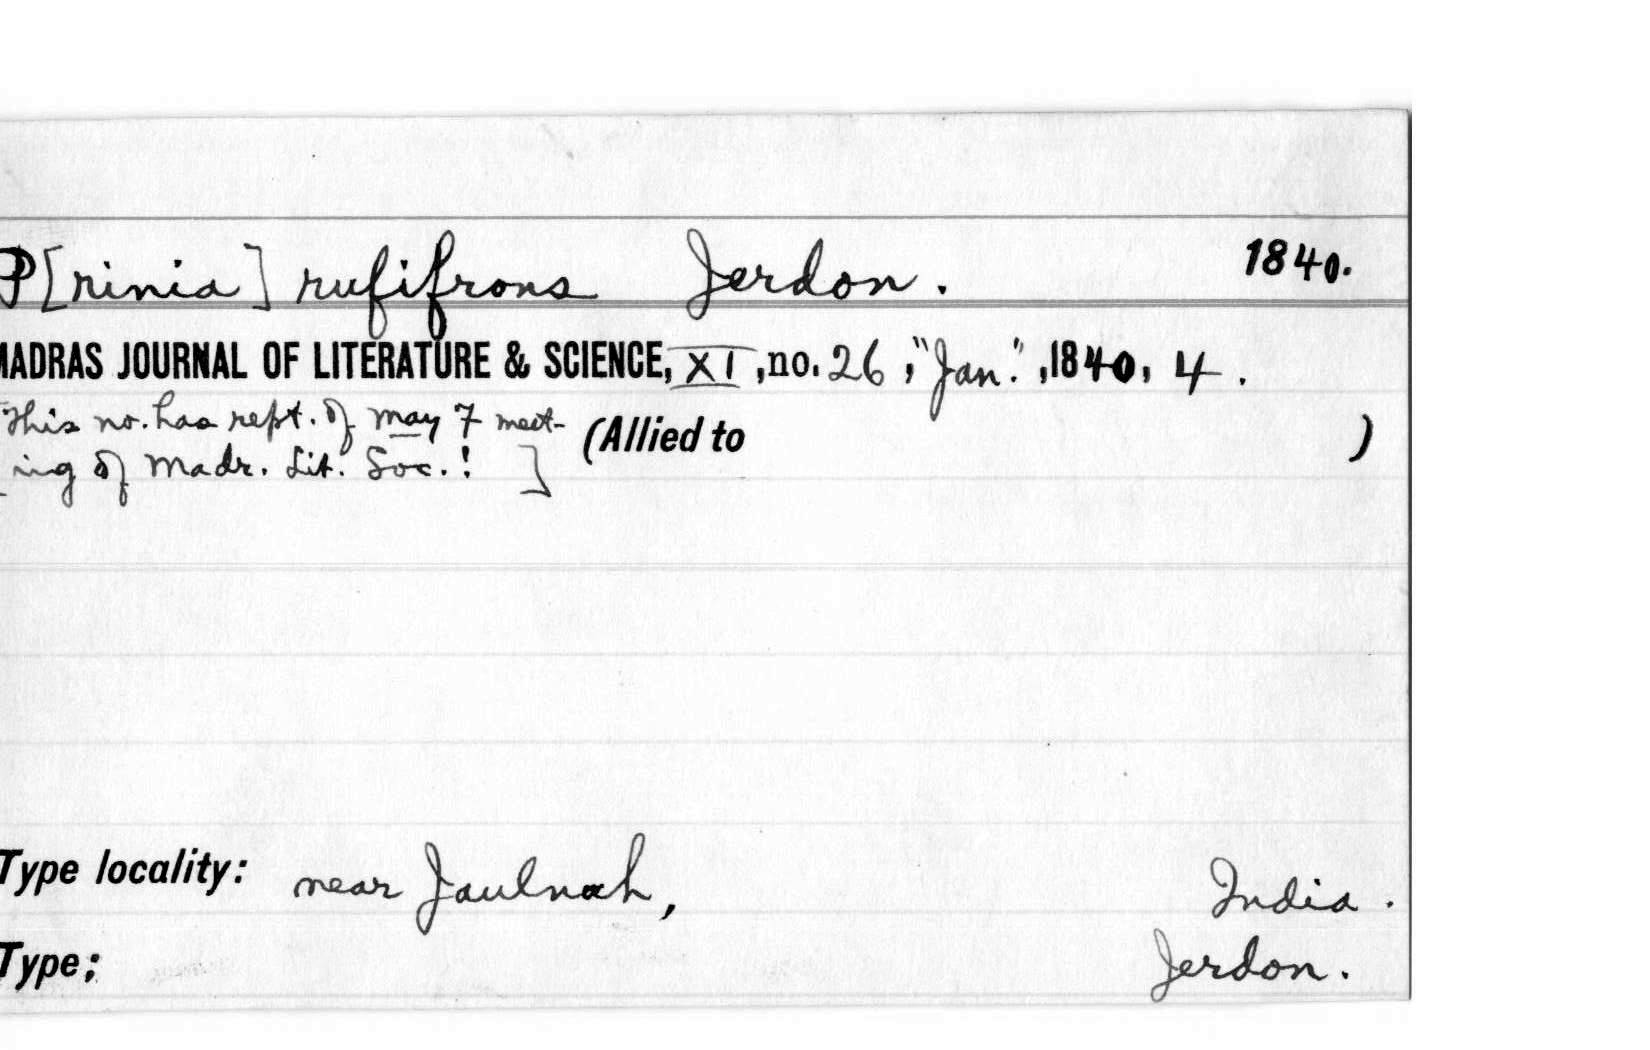 P[rinia] rufifrons Jerdon. 1840.
MADRAS JOURNAL OF LITERATURE & SCIENCE, XI, no. 26, "Jan.", 1840, 4.
[This no. has rept. of May 7 meet- (Allied to )
ing of Madr. Lit. Soc.! ]
Type locality: near Jaulnah, India.
Type; Jerdon.